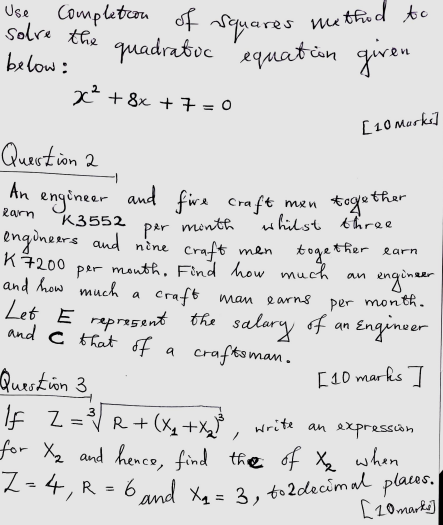 Use Completion of squares method to
solve the quadratic equation given
below:
x² + 8x + 7 = 0
[10 Marks]
Question 2
An engineer and five craft men together
earn K3552 per month whilst three
engineers and nine craft men together earn
K7200 per month. Find how much an engineer
and how much a craft man earns per month.
Let E represent the salary of an Engineer
and C that of a craftsman.
[10 marks]
Question 3
If Z = ∛(R + (X₁ + X₂)³), write an expression
for X₂ and hence, find the of X₂ when
Z = 4, R = 6 and X₁ = 3, to 2 decimal places.
[10 marks]